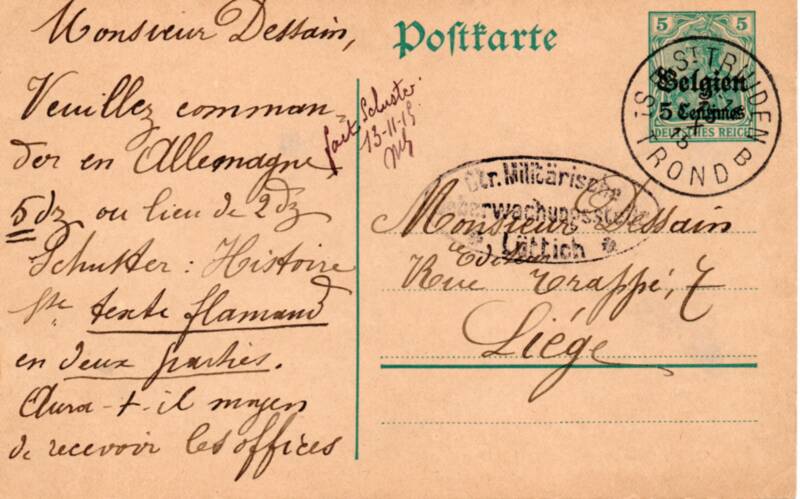 Monsieur Dessain,
Veuillez comman-
der en Allemagne
5 dz au lieu de 2 dz
Schutter : Histoire
Ste texte flamand
en deux parties.
Aura-t-il moyen
de recevoir les offices
fait Schuster
13-11-15
Postkarte
5 5
Belgien
5 Centimes
DEUTSCHES REICH
ST TRUIDEN
ST TROND
B
Militärische
Ueberwachungsstelle
Lüttich
Monsieur Dessain
Editeur
Rue Trappé, 7
Liége